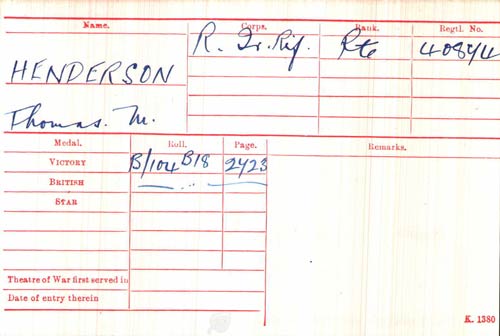 Name. Corps. Rank. Regtl. No.
R. Ir. Rif. Pte 40894
HENDERSON
Thomas. M.
Medal. Roll. Page. Remarks.
VICTORY B/104 B18 2423
BRITISH
STAR
Theatre of War first served in
Date of entry therein
K. 1380